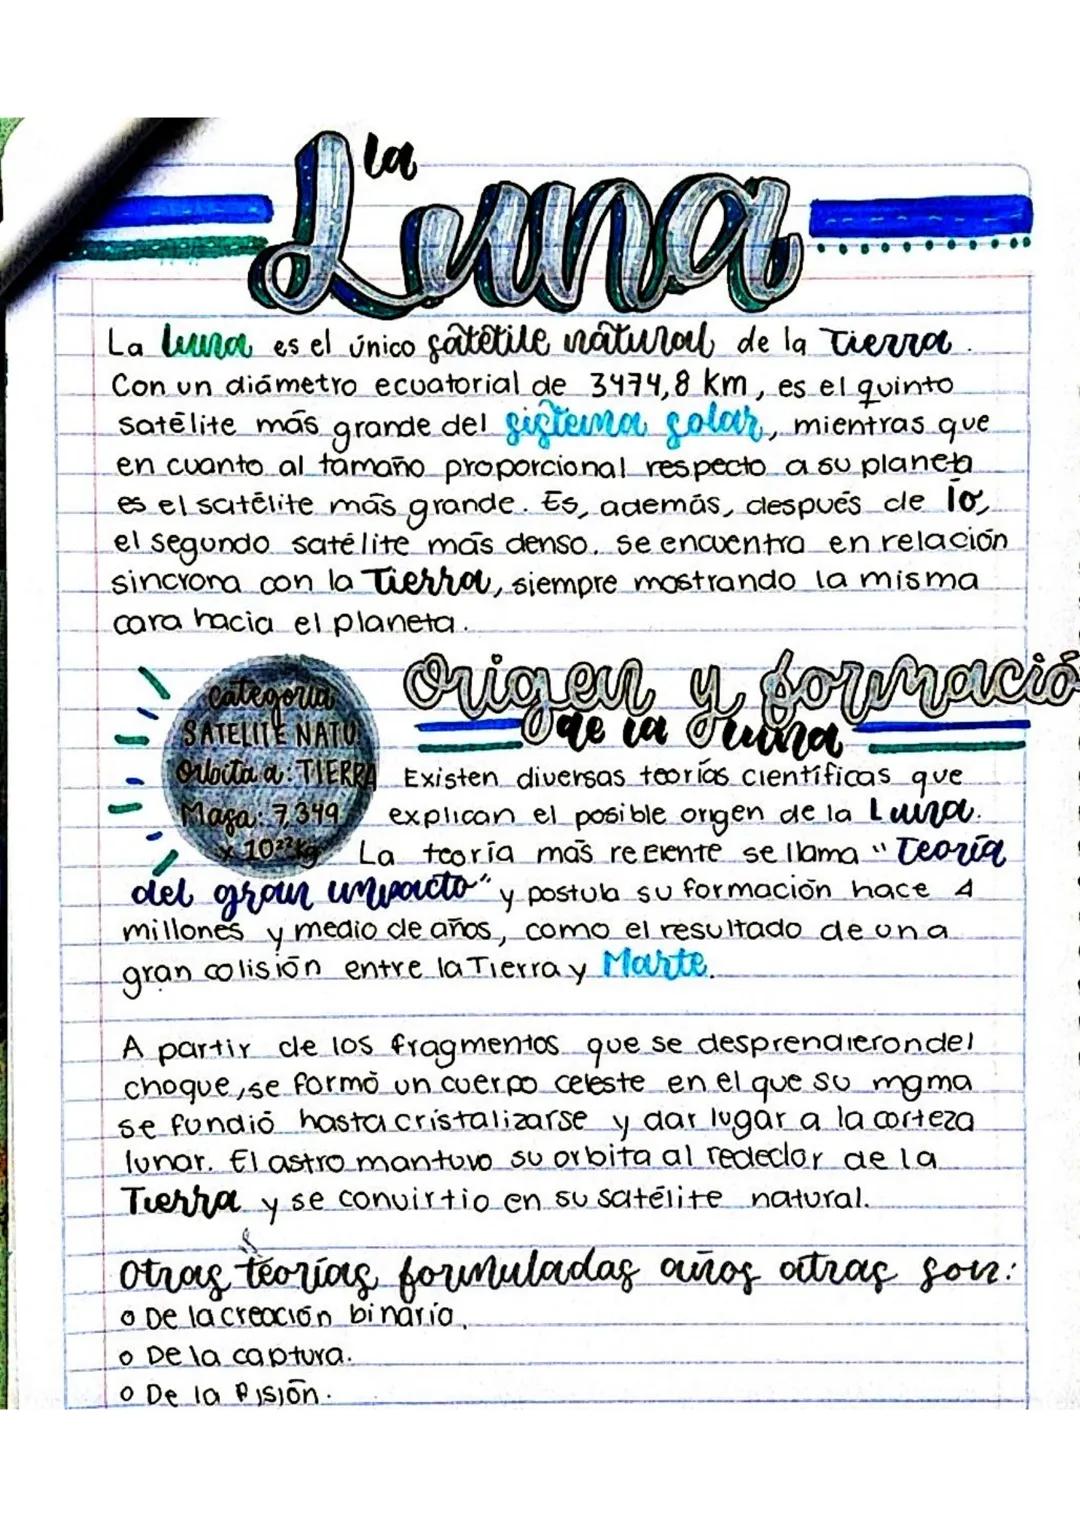 la
Luna
La luna es el único satélite natural de la Tierra.
Con un diámetro ecuatorial de 3474,8 km, es el quinto
satélite más grande del sistema solar, mientras que
en cuanto al tamaño proporcional respecto a su planeta
es el satélite más grande. Es, además, después de Io,
el segundo satélite más denso. se encuentra en relación
sincrona con la Tierra, siempre mostrando la misma
cara hacia el planeta.
categoria
SATELITE NATU
Orbita a: TIERRA
Masa: 7,349
x 10²² kg
Origen y formació
de la luna
Existen diversas teorías científicas que
explican el posible origen de la Luna.
La teoría más reciente se llama "Teoría
del gran impacto" y postula su formación hace 4
millones y medio de años, como el resultado de una
gran colisión entre la Tierra y Marte.
A partir de los fragmentos que se desprendieron del
choque, se formó un cuerpo celeste en el que su mgma
se fundió hasta cristalizarse y dar lugar a la corteza
lunar. El astro mantuvo su orbita al rededor de la
Tierra y se convirtio en su satélite natural.
Otras teorías formuladas años atras son:
o De la creación binaria.
o De la captura.
o De la fisión.